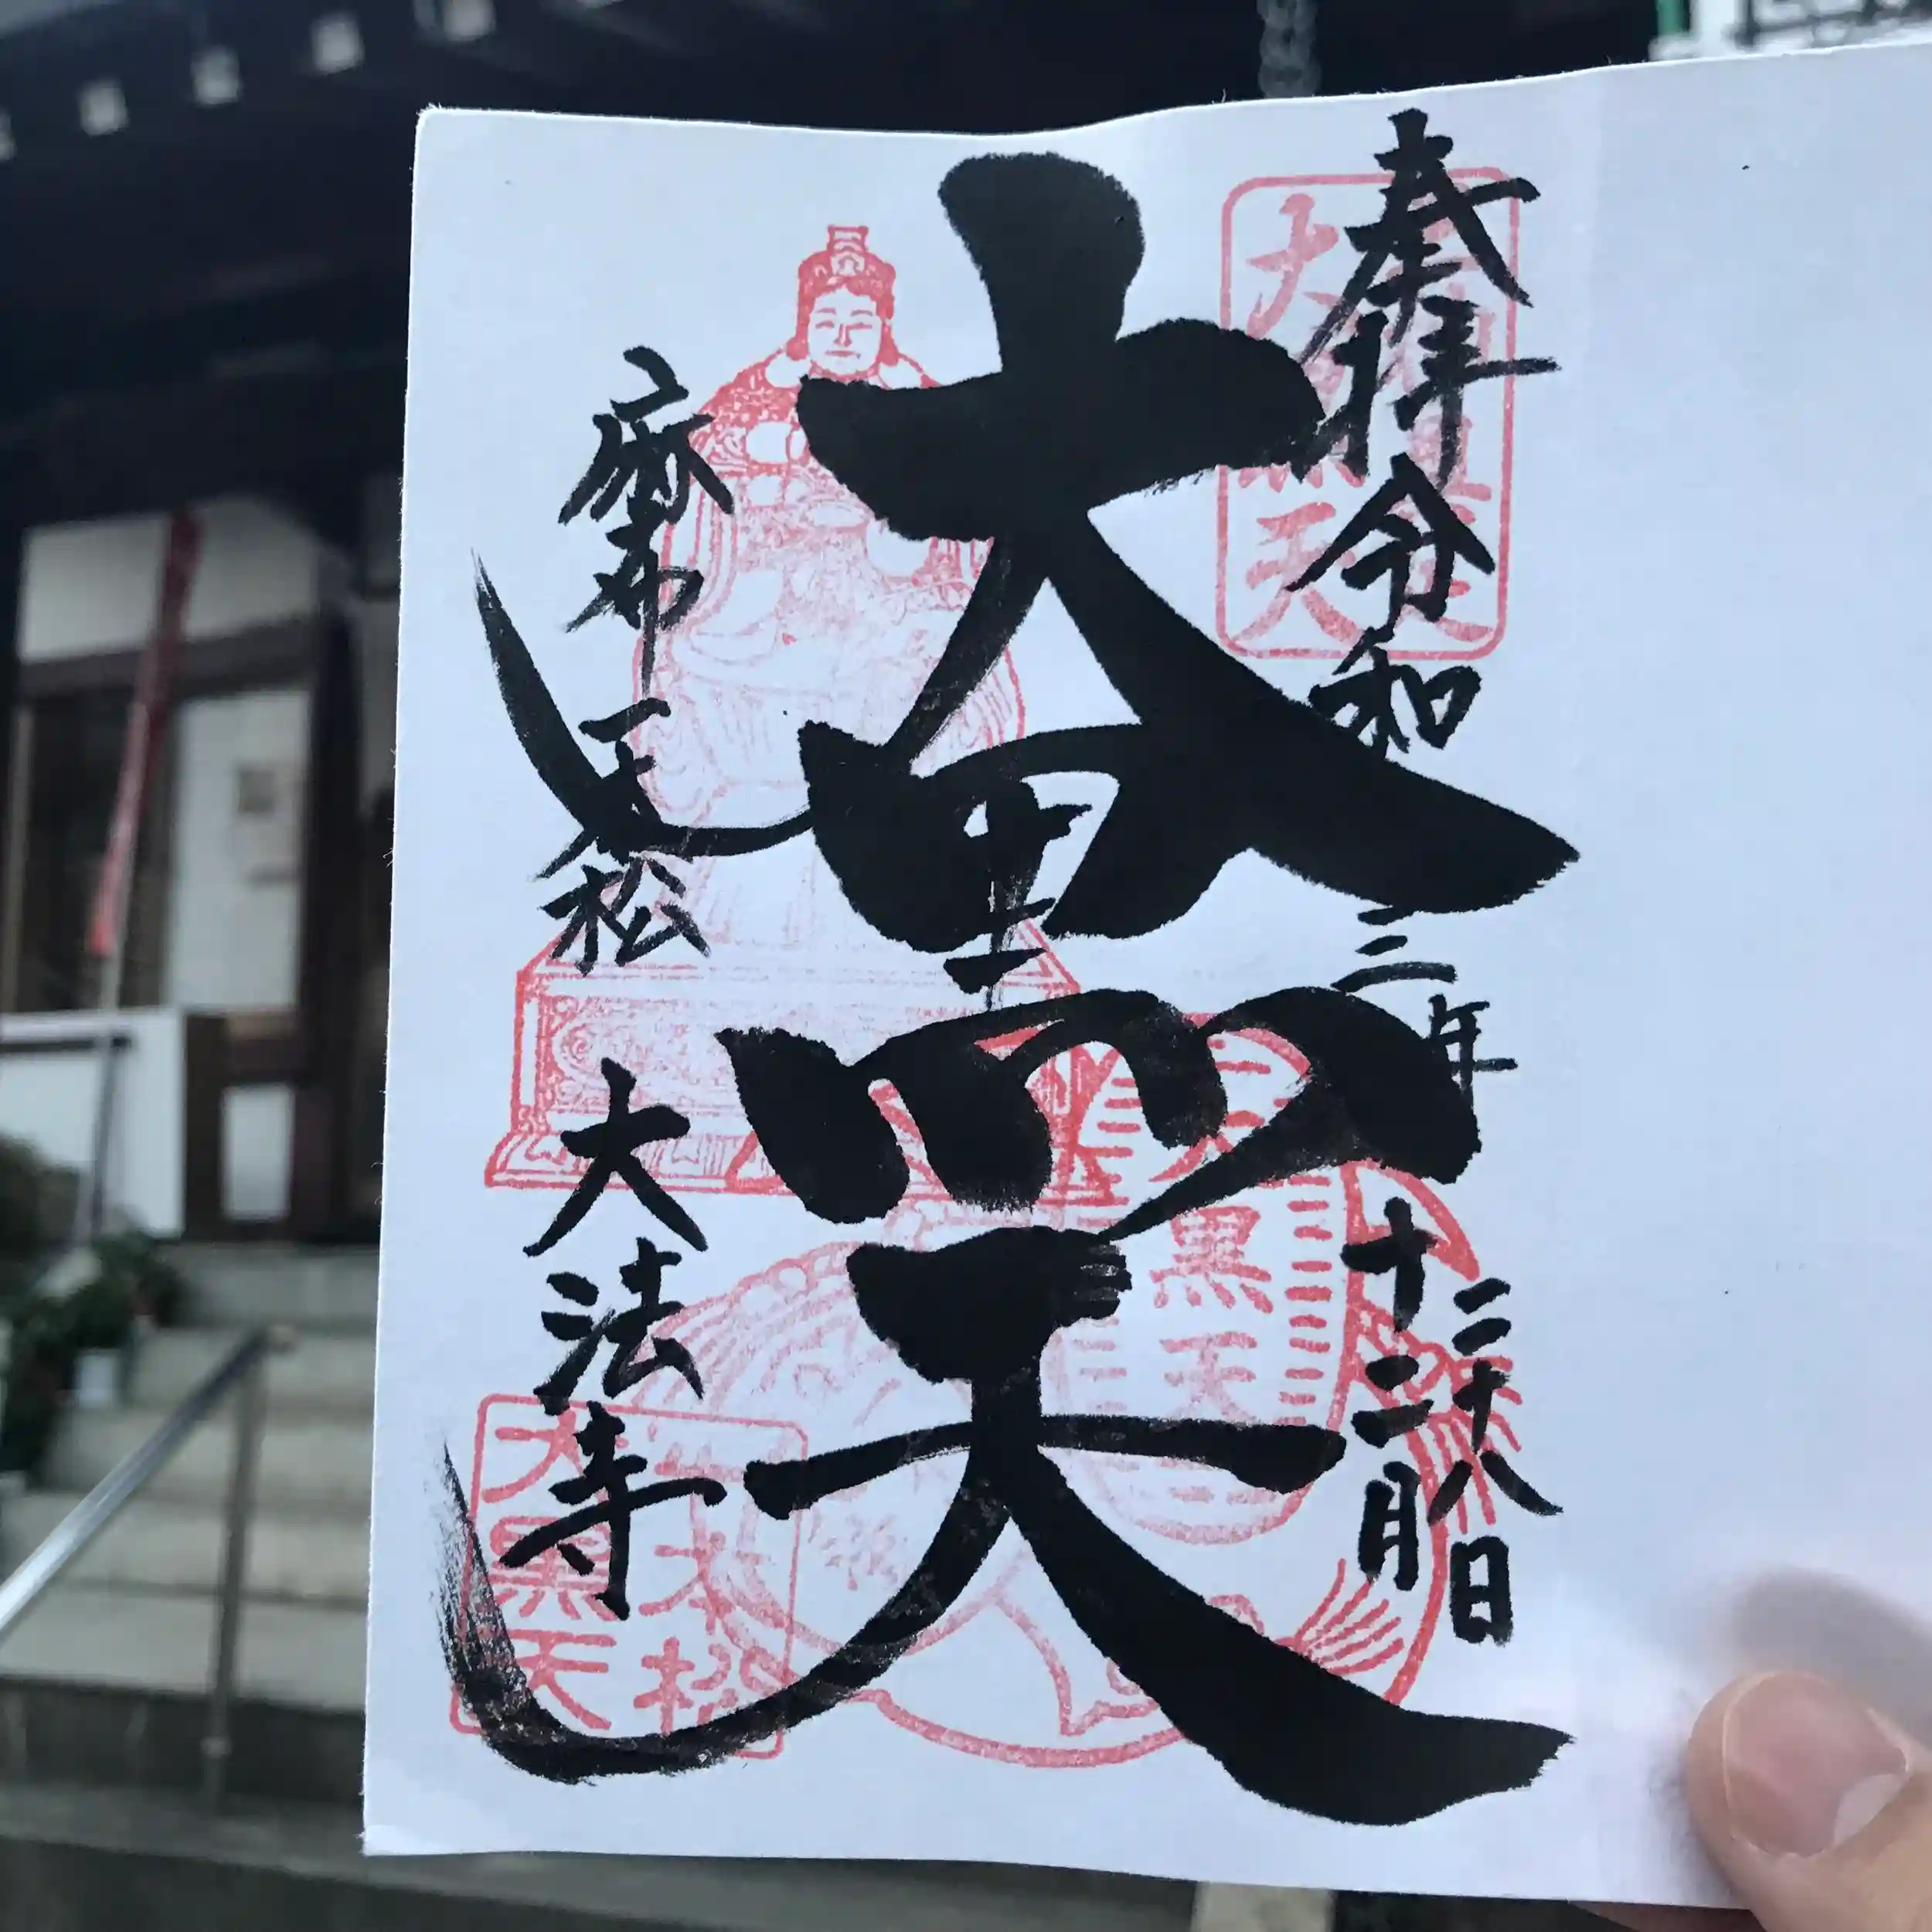 奉拝 令和三年
十二月
二十八日
大黒天
麻布 一本松
大法寺
黒天
大黒天
一本松